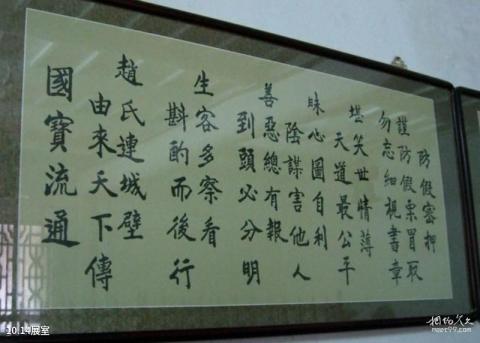 防假密押
謹防假票冒取
勿忘細視書章
堪笑世情薄
天道最公平
昧心圖自利
陰謀害他人
善惡總有報
到頭必分明
生客多察看
斟酌而後行
趙氏連城壁
由來天下傳
國寶流通
10.14展室